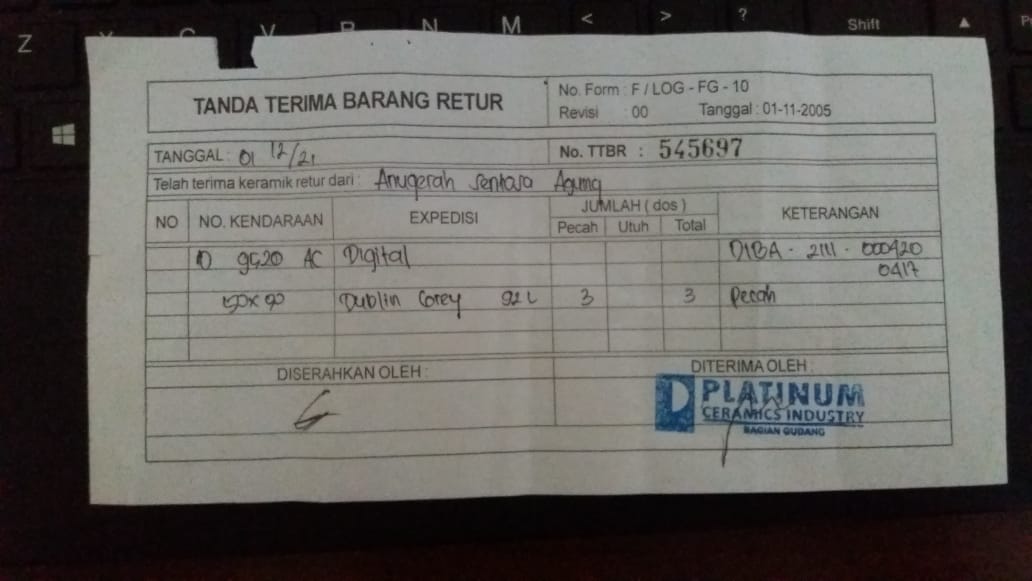 Z X C V B N M < > ? Shift
TANDA TERIMA BARANG RETUR
No. Form : F / LOG - FG - 10
Revisi : 00 Tanggal : 01-11-2005
TANGGAL : 01 12/21
No. TTBR : 545697
Telah terima keramik retur dari : Anugerah Sentosa Agung
NO NO. KENDARAAN EXPEDISI JUMLAH ( dos ) KETERANGAN
Pecah Utuh Total
D 9520 AC Digital DIBA - 2111 - 000420
0417
Dublin Corey 92 L 3 3 Pecah
DISERAHKAN OLEH : DITERIMA OLEH :
PLATINUM
CERAMICS INDUSTRY
BAGIAN GUDANG